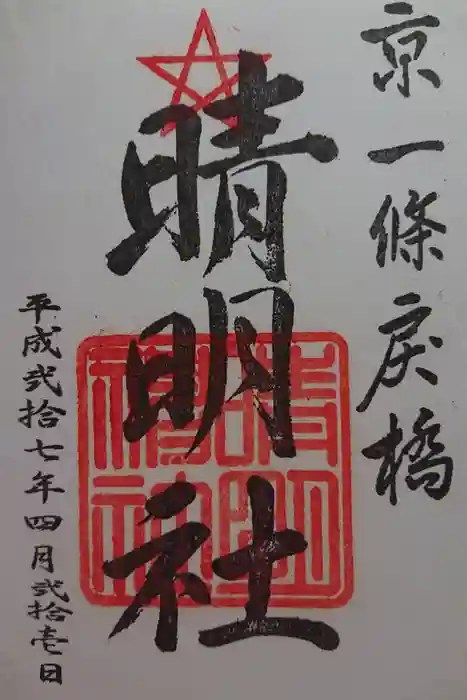 京一條戻橋
晴明社
晴明
神社
平成弐拾七年四月弐拾壱日